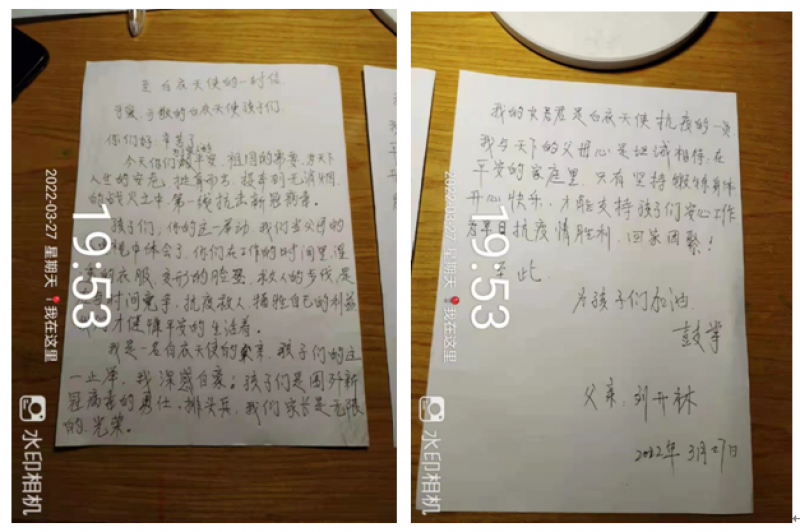 至白衣天使的一封信
可爱、可敬的白衣天使孩子们
你们好,辛苦了
今天你们 平安,祖国的需要,为天下
人生的安危,挺身而出,投奔到无消烟
的战火之中,第一线抗击新冠病毒。
孩子们,你的这一举动,我们当父母的
视中体会了,你们在工作的时间里,湿
的衣服,变形的脸蛋,救人的步伐,是
时间竞争,抗疫救人,牺牲自己的利益
才健康平安的生活着。
我是一名白衣天使的 亲,孩子们的这
一止举,我深感自豪。孩子们是国歼新
冠病毒的勇仕,排头兵,我们家长是无限
的光荣。
2022-03-27 星期天 我在这里
19:53
水印相机
我的女君君是白衣天使抗疫的一员
我与天下的父母心是坦诚相待,在
平安的家庭里,只有坚持锻练身体
开心快乐,才能支持孩子们安心工作
早日抗疫情胜利,回家团聚!
至此
为孩子们加油
鼓掌
父亲:刘开林
2022年3月27日
2022-03-27 星期天 我在这里
19:53
水印相机